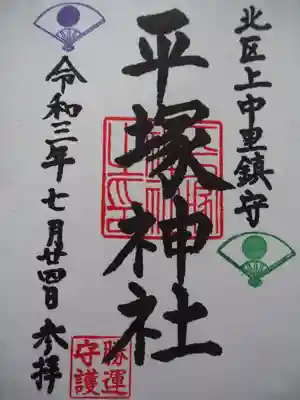 北区上中里鎮守
平塚神社
勝運
守護
令和三年七月廿四日参拝